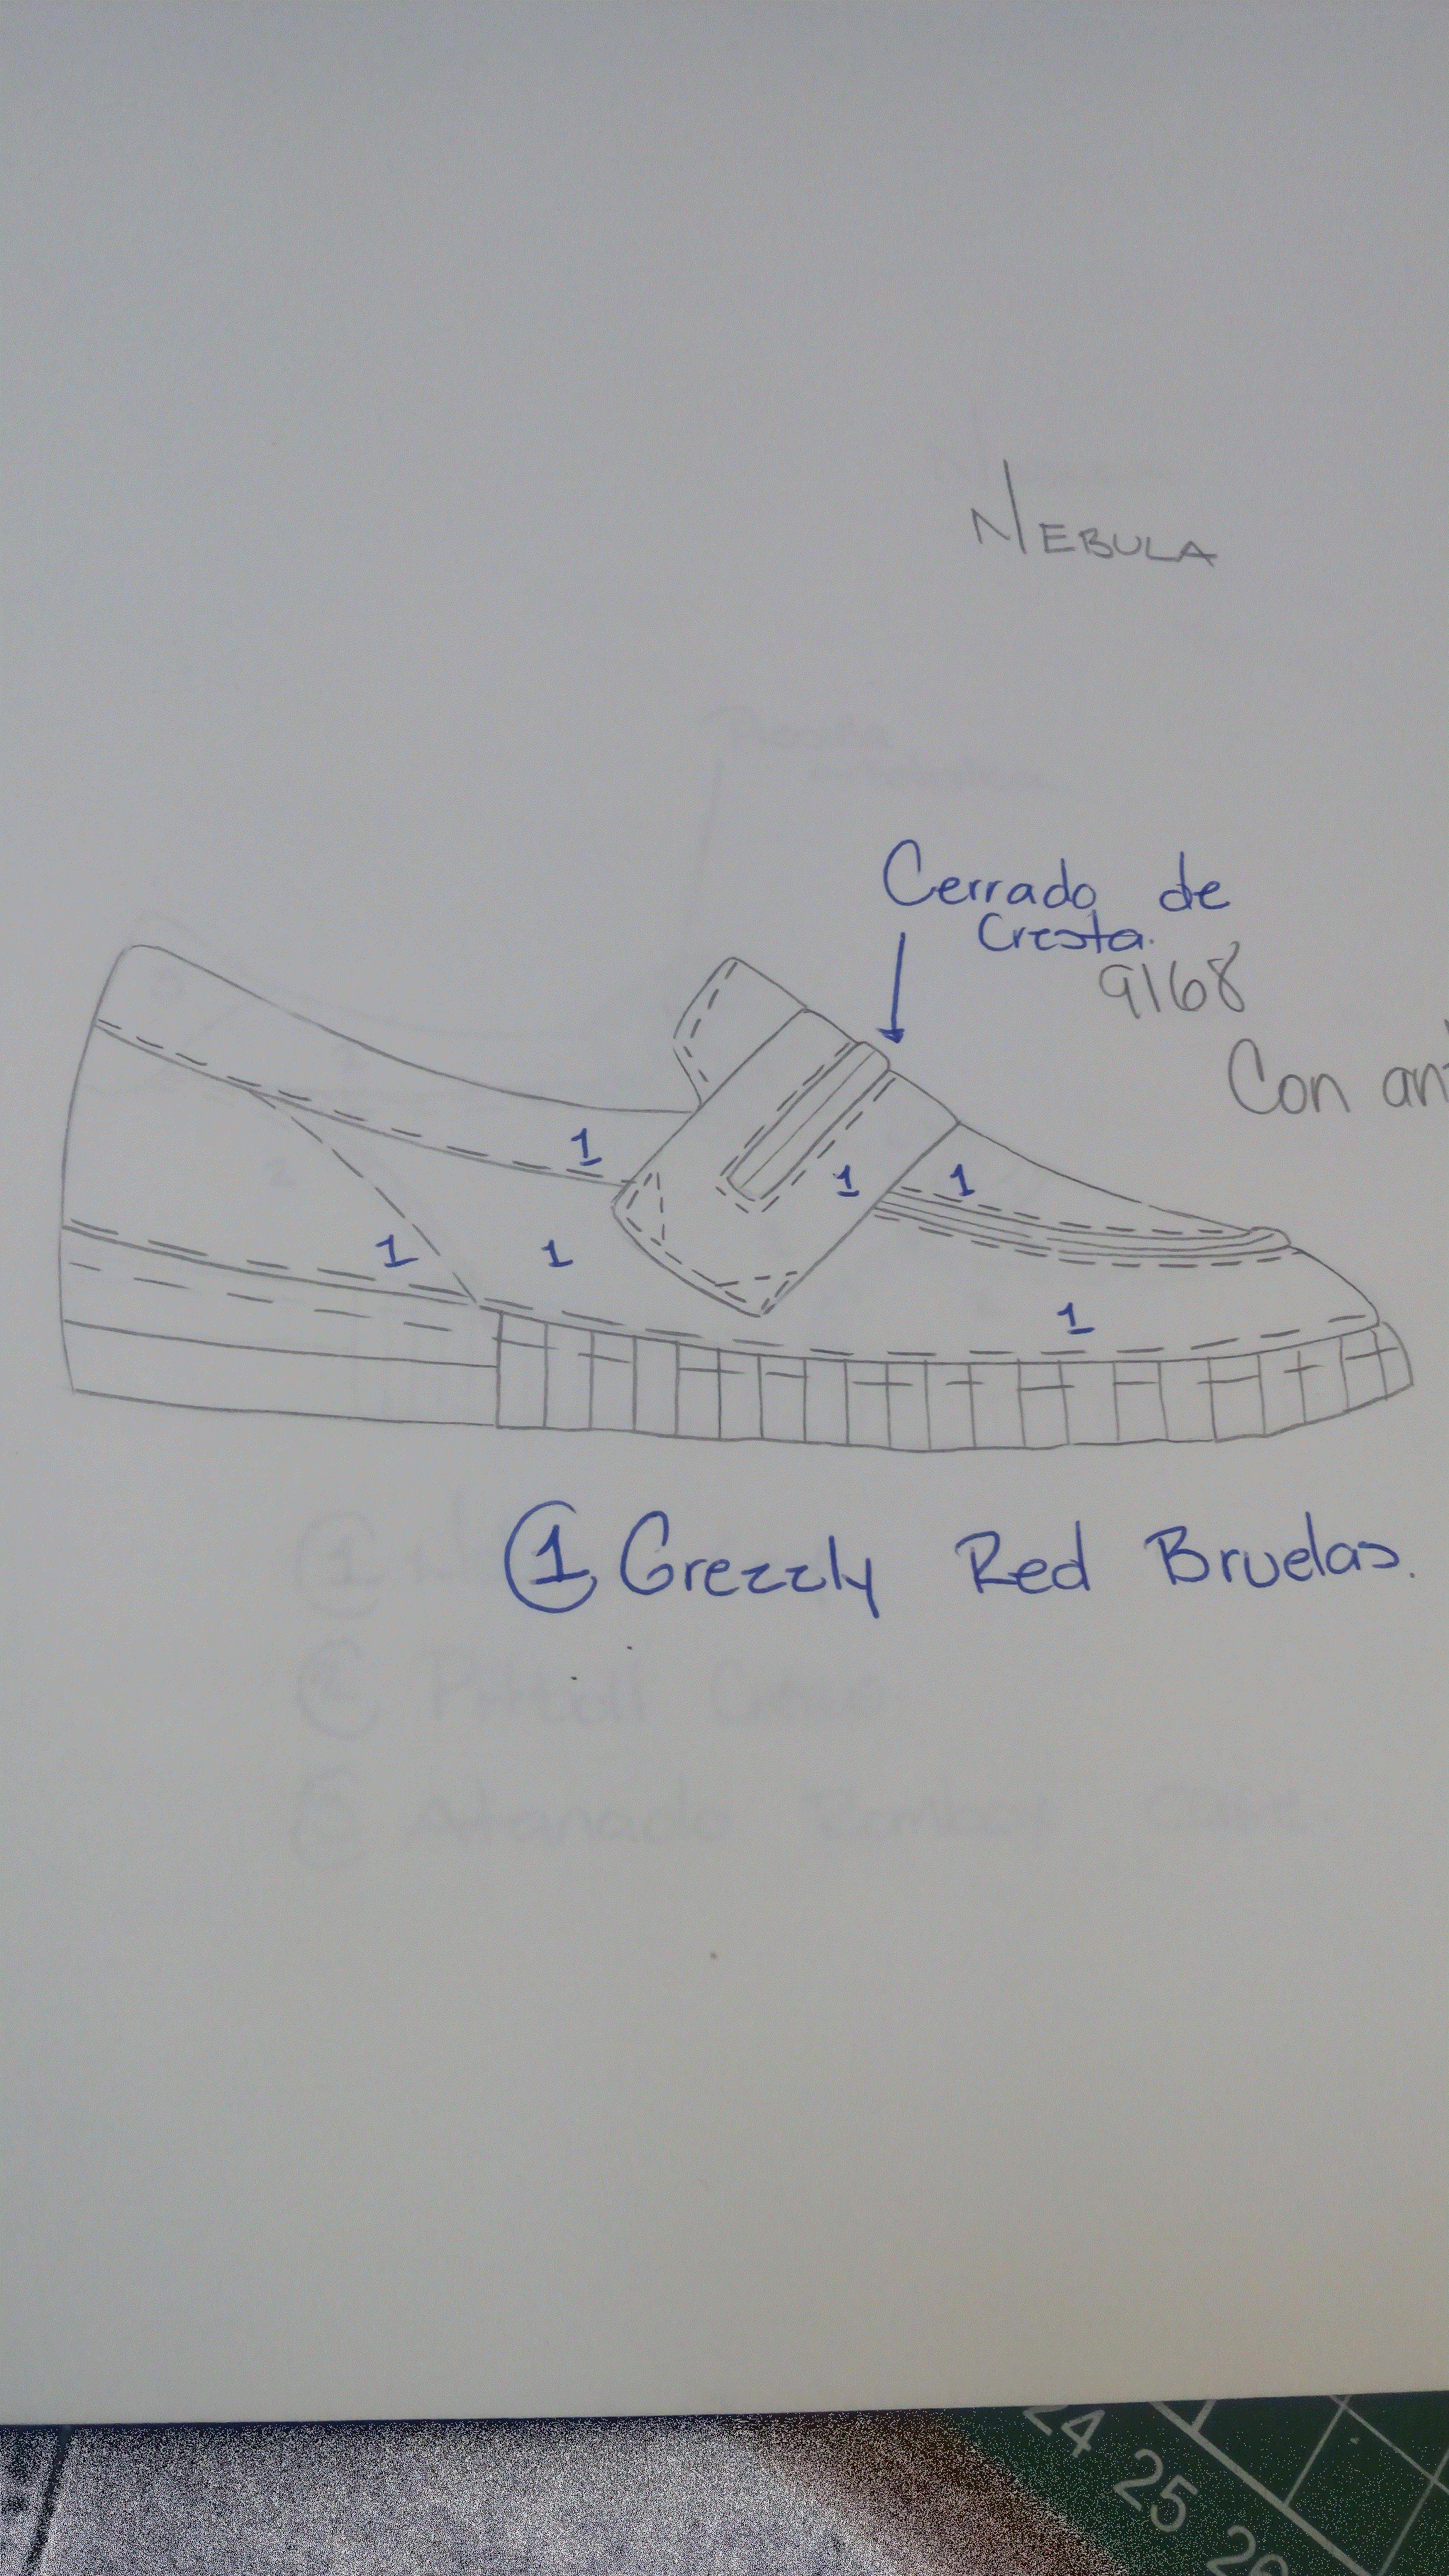 NEBULA
Cerrado de
Cresta.
9168
Con an
1
1
1
1
1
1
① Grezzly Red Bruelas.
24
25
26